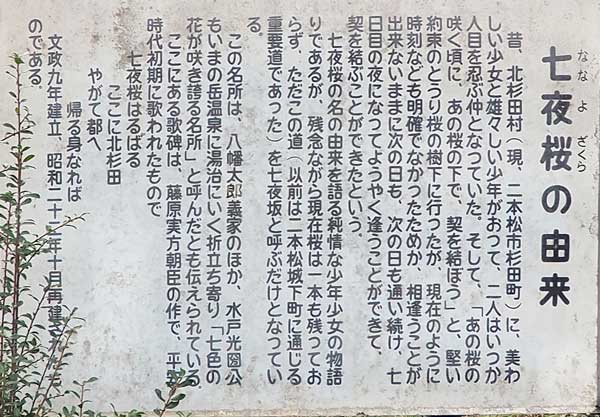 七夜桜の由来
ななよざくら
昔、北杉田村（現、二本松市杉田町）に、美わ
しい少女と雄々しい少年がおって、二人はいつか
人目を忍ぶ仲となっていた。そして、「あの桜の
咲く頃に、あの桜の下で、契を結ぼう」と、堅い
約束のとうり桜の樹下に行ったが、現在のように
時刻なども明確でなかつたためか、相逢うことが
出来ないままに次の日も、次の日も通い続け、七
日目の夜になってようやく逢うことができて、
契を結ぶことができたという。
七夜桜の名の由来を語る純情な少年少女の物語
りであるが、残念ながら現在桜は一本も残ってお
らず、ただこの道（以前は二本松城下町に通じる
重要道であった）を七夜坂と呼ぶだけとなってい
る。
この名所は、八幡太郎義家のほか、水戸光圀公
もいまの岳温泉に湯治にいく折立ち寄り「七色の
花が咲き誇る名所」と呼んだとも伝えられている
ここにある歌碑は、藤原実方朝臣の作で、平
時代初期に歌われたもので
七夜桜はるばる
ここに北杉田
やがて都へ
帰る身なれば
文政九年建立、昭和二十二年十月再建され
のである。